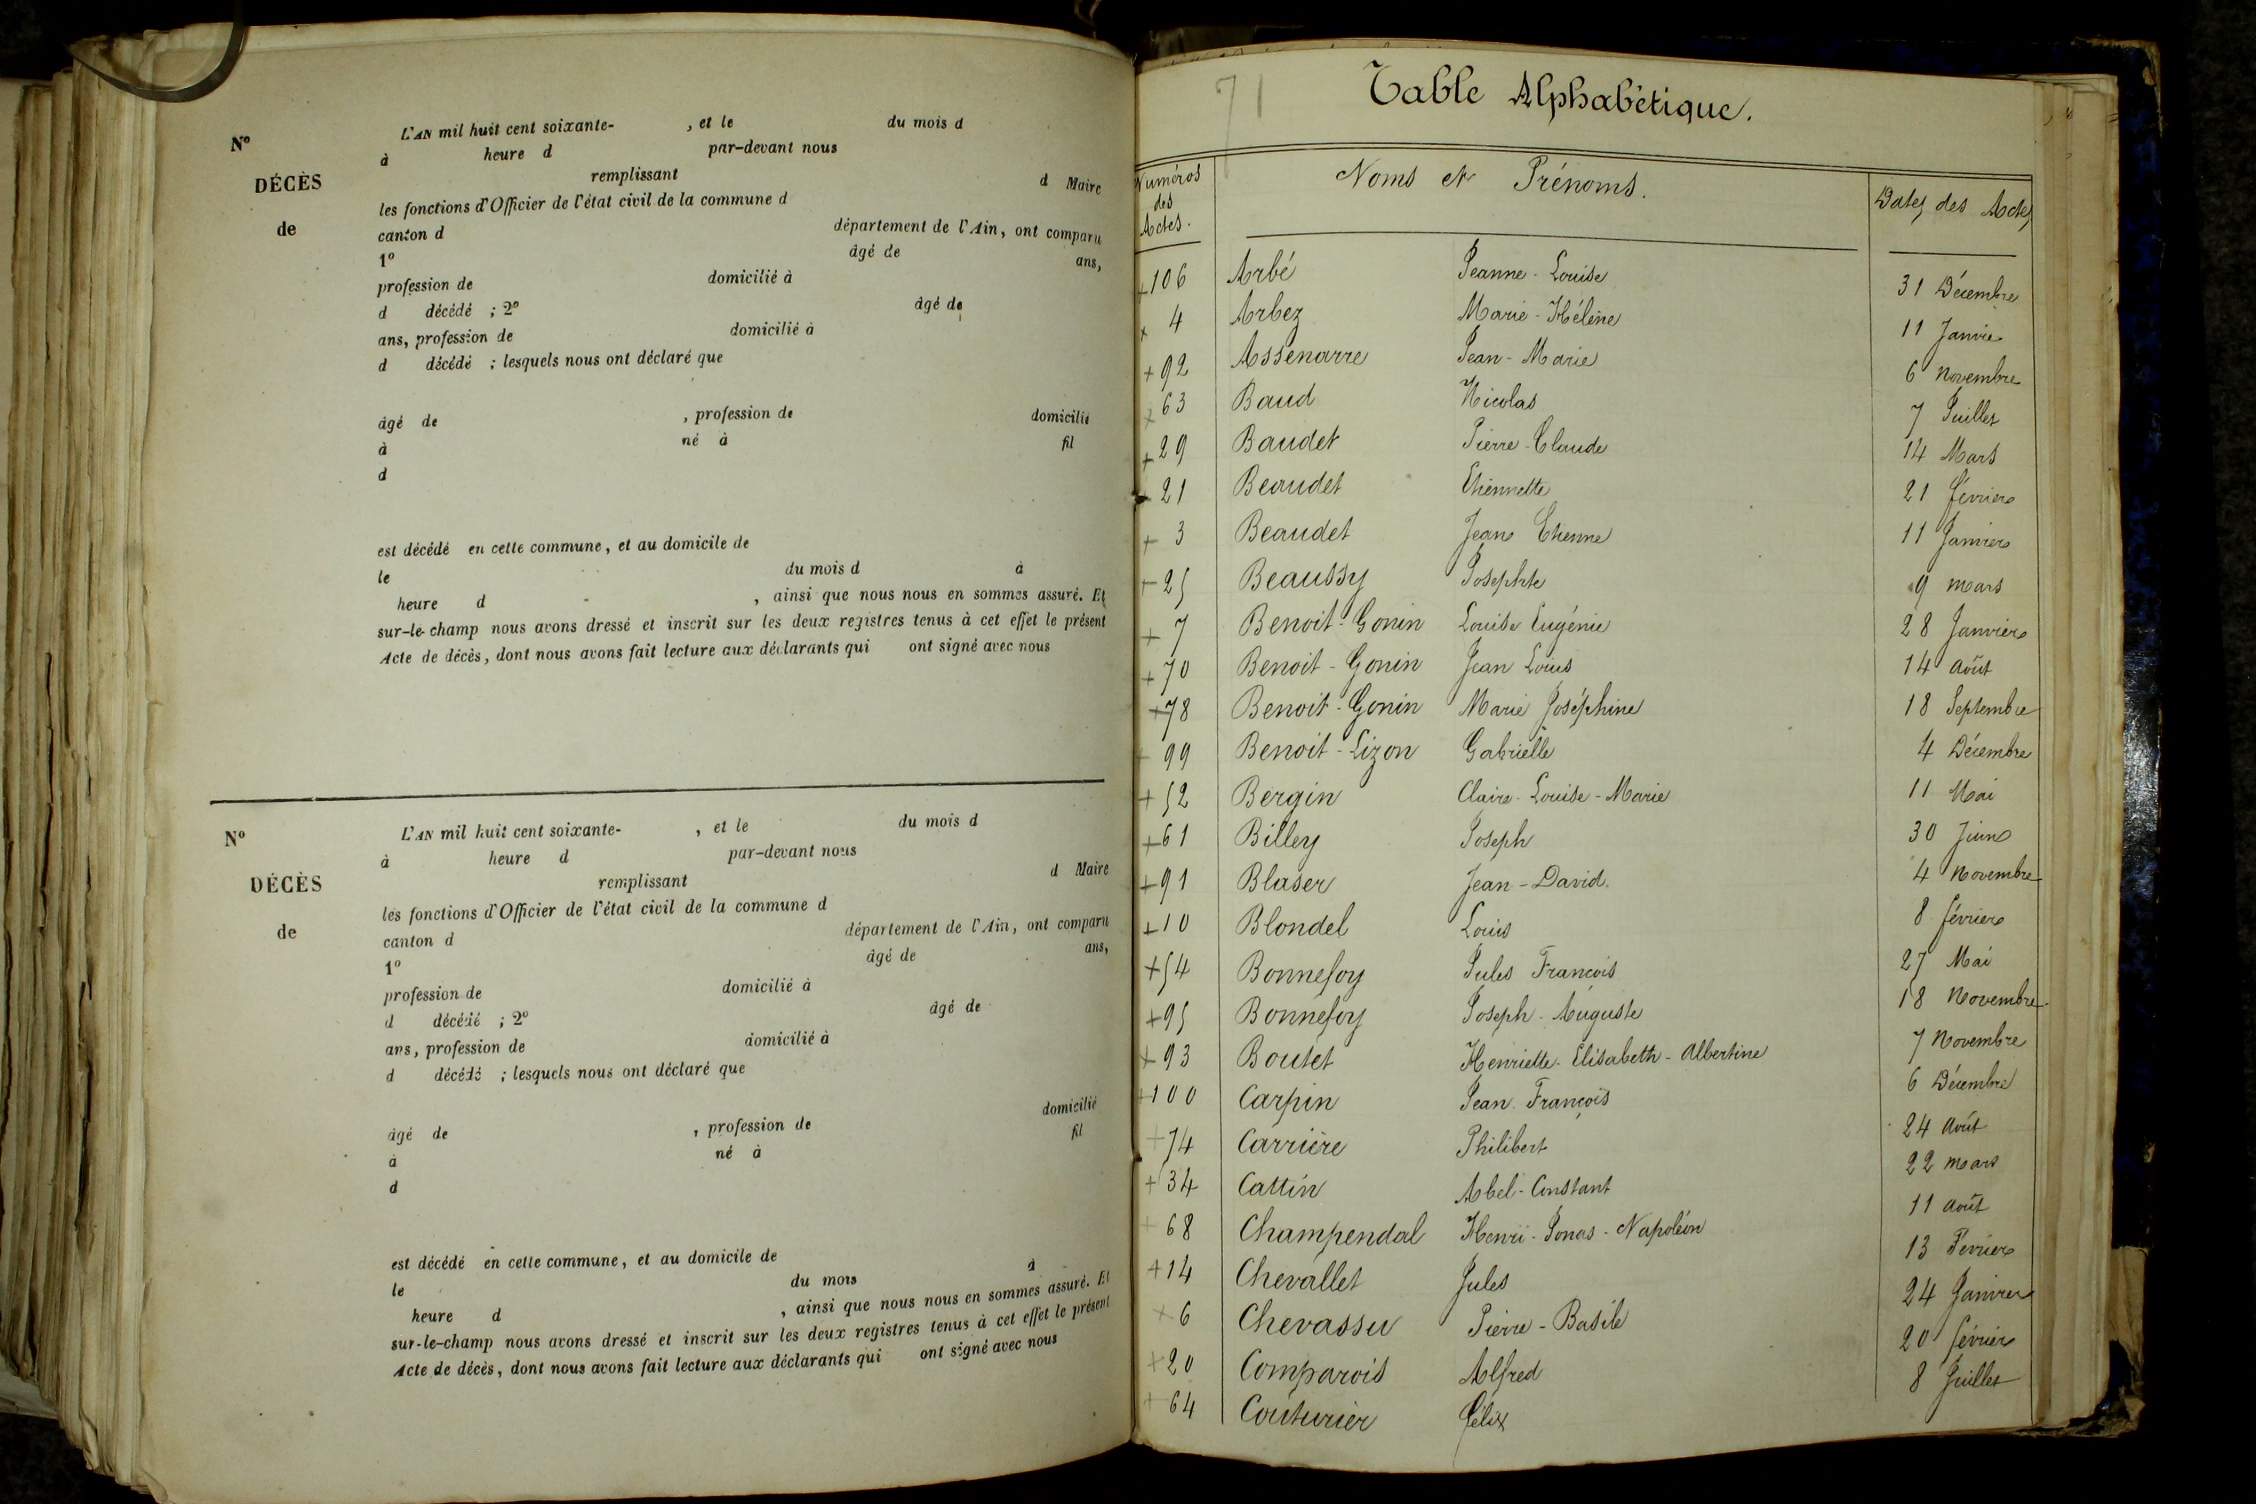 N° L'AN mil huit cent soixante- , et le du mois d
à heure d par-devant nous
DÉCÈS remplissant d Maire
les fonctions d'Officier de l'état civil de la commune d
de canton d département de l'Ain, ont comparu
1° âgé de ans,
profession de domicilié à
d décédé ; 2° âgé de
ans, profession de domicilié à
d décédé ; lesquels nous ont déclaré que
âgé de , profession de domicilié
à né à fil
d
est décédé en cette commune, et au domicile de
le du mois d à
heure d , ainsi que nous nous en sommes assuré. Et
sur-le-champ nous avons dressé et inscrit sur les deux registres tenus à cet effet le présent
Acte de décès, dont nous avons fait lecture aux déclarants qui ont signé avec nous
N° L'AN mil huit cent soixante- , et le du mois d
à heure d par-devant nous
DÉCÈS remplissant d Maire
les fonctions d'Officier de l'état civil de la commune d
de canton d département de l'Ain, ont comparu
1° âgé de ans,
profession de domicilié à
d décédé ; 2° âgé de
ans, profession de domicilié à
d décédé ; lesquels nous ont déclaré que
âgé de , profession de domicilié
à né à fil
d
est décédé en cette commune, et au domicile de
le du mois à
heure d , ainsi que nous nous en sommes assuré. Et
sur-le-champ nous avons dressé et inscrit sur les deux registres tenus à cet effet le présent
Acte de décès, dont nous avons fait lecture aux déclarants qui ont signé avec nous
71
Table Alphabétique.
Numéros des Actes. Noms et Prénoms. Dates des Actes
+106 Arbé Jeanne-Louise 31 Décembre
+ 4 Arbez Marie-Hélène 11 Janvier
+ 92 Assenarre Jean-Marie 6 Novembre
+ 63 Baud Nicolas 7 Juillet
+ 29 Baudet Pierre-Claude 14 Mars
+ 21 Beaudet Etiennette 21 février
+ 3 Beaudet Jean Etienne 11 Janvier
+ 25 Beaussy Josephte 9 mars
+ 7 Benoit-Gonin Louise Eugénie 28 Janvier
+ 70 Benoit-Gonin Jean Louis 14 août
+ 78 Benoit-Gonin Marie Joséphine 18 Septembre
+ 99 Benoit-Lizon Gabrielle 4 Décembre
+ 52 Bergin Claire-Louise-Marie 11 Mai
+ 61 Billey Joseph 30 Juin
+ 91 Blaser Jean-David. 4 Novembre
+ 10 Blondel Louis 8 février
+ 54 Bonnefoy Jules François 27 Mai
+ 95 Bonnefoy Joseph-Auguste 18 Novembre
+ 93 Boutet Henriette-Elisabeth-Albertine 7 Novembre
+100 Carpin Jean François 6 Décembre
+ 74 Carrière Philibert 24 août
+ 34 Cattin Abel-Constant 22 mars
+ 68 Champendal Henri-Jonas-Napoléon 11 août
+ 14 Chevallet Jules 13 Février
+ 6 Chevassu Pierre-Basile 24 Janvier
+ 20 Comparois Alfred 20 février
+ 64 Couturier Félix 8 Juillet